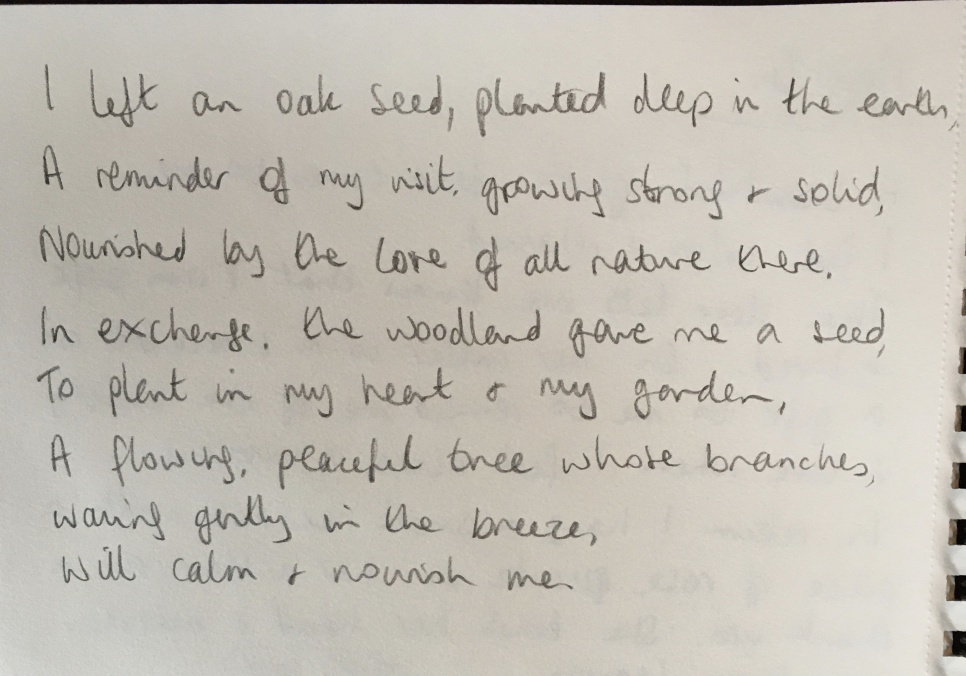 I left an oak seed, planted deep in the earth,
A reminder of my visit, growing strong & solid,
Nourished by the love of all nature there.
In exchange, the woodland gave me a seed,
To plant in my heart & my garden,
A flowing, peaceful tree whose branches,
waving gently in the breeze,
Will calm & nourish me.